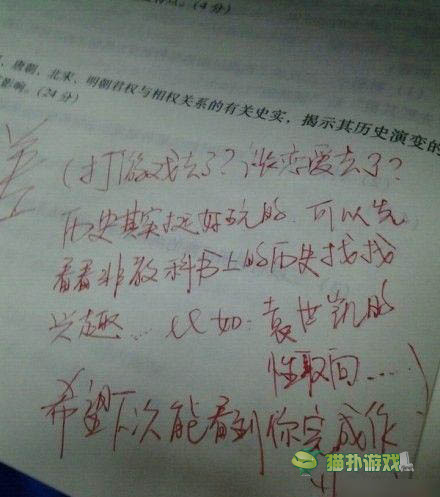 (4分)
唐朝、北宋、明朝君权与相权关系的有关史实，揭示其历史演变的
影响。(24分)
差
(打游戏去了?谈恋爱去了?
历史其实挺好玩的 可以先
看看非教科书上的历史找找
兴趣...比如:袁世凯的
性取向......)
希望下次能看到你完成作
业
猫扑游戏